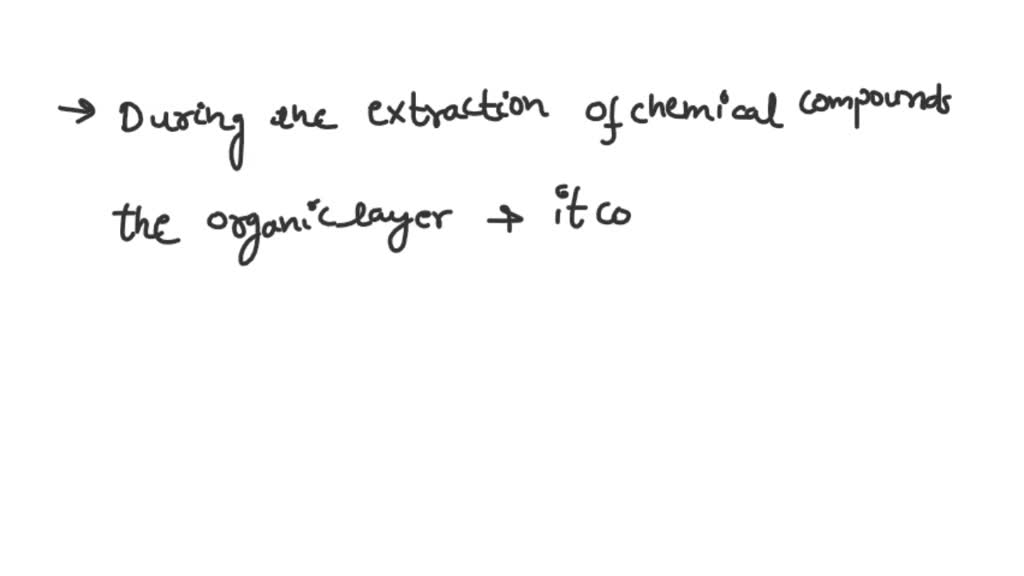 → During the extraction of chemical compounds
the organic layer → it co